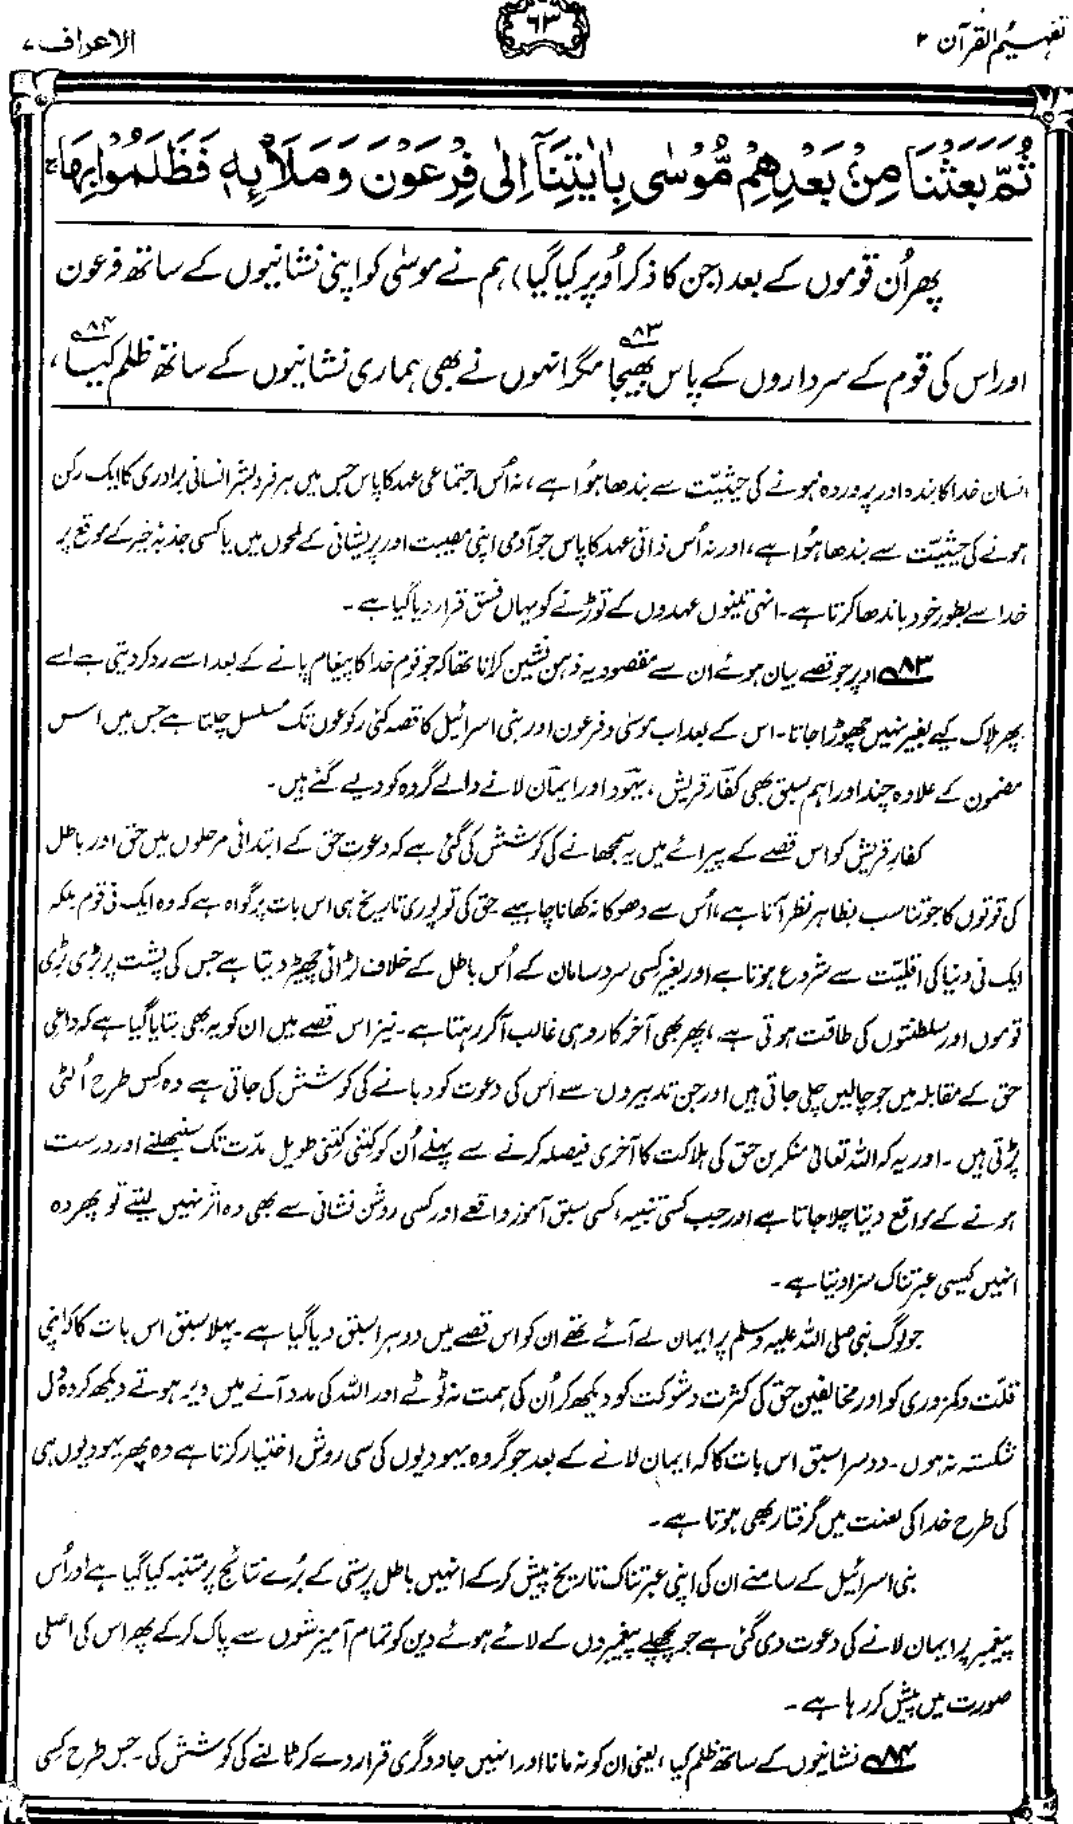 تفہیم القرآن ۲
۶۳
الاعراف ۷
ثُمَّ بَعَثْنَا مِنْۢ بَعْدِهِمْ مُّوْسٰى بِاٰيٰتِنَاۤ اِلٰى فِرْعَوْنَ وَمَلَا۟ىِٕهٖ فَظَلَمُوْا بِهَاۚ
پھر اُن قوموں کے بعد (جن کا ذکر اُوپر کیا گیا) ہم نے موسیٰ کو اپنی نشانیوں کے ساتھ فرعون
اور اس کی قوم کے سرداروں کے پاس بھیجا۸۳ مگر انہوں نے بھی ہماری نشانیوں کے ساتھ ظلم کیا۸۴،
انسان خدا کا بندہ اور پروردہ ہونے کی حیثیّت سے بندھا ہُوا ہے، نہ اُس اجتماعی عہد کا پاس جس میں ہر فرد بشر انسانی برادری کا ایک رکن
ہونے کی حیثیّت سے بندھا ہُوا ہے، اور نہ اُس ذاتی عہد کا پاس جو آدمی اپنی مصیبت اور پریشانی کے لمحوں میں یا کسی جذبۂ خیر کے موقع پر
خدا سے بطور خود باندھا کرتا ہے۔ انہی تینوں عہدوں کے توڑنے کو یہاں فسق قرار دیا گیا ہے۔
۸۳ اوپر جو قصے بیان ہوئے ان سے مقصود یہ ذہن نشین کرانا تھا کہ جو قوم خدا کا پیغام پانے کے بعد اسے رد کردیتی ہے اسے
پھر ہلاک کیے بغیر نہیں چھوڑا جاتا۔ اس کے بعد اب موسیٰ و فرعون اور بنی اسرائیل کا قصہ کئی رکوعوں تک مسلسل چلتا ہے جس میں اس
مضمون کے علاوہ چند اور اہم سبق بھی کفّار قریش، یہود اور ایمان لانے والے گروہ کو دیے گئے ہیں۔
کفارِ قریش کو اس قصے کے پیرائے میں یہ سمجھانے کی کوشش کی گئی ہے کہ دعوتِ حق کے ابتدائی مرحلوں میں حق اور باطل
کی قوتوں کا جو تناسب بظاہر نظر آتا ہے، اُس سے دھوکا نہ کھانا چاہیے۔ حق کی تو پوری تاریخ ہی اس بات پر گواہ ہے کہ وہ ایک فی قوم بلکہ
ایک فی دنیا کی اقلیّت سے شروع ہوتا ہے اور بغیر کسی سروسامان کے اُس باطل کے خلاف لڑائی چھیڑ دیتا ہے جس کی پشت پر بڑی بڑی
قوموں اور سلطنتوں کی طاقت ہوتی ہے، پھر بھی آخر کار وہی غالب آکر رہتا ہے۔ نیز اس قصے میں ان کو یہ بھی بتایا گیا ہے کہ داعیِ
حق کے مقابلہ میں جو چالیں چلی جاتی ہیں اور جن تدبیروں سے اُس کی دعوت کو دبانے کی کوشش کی جاتی ہے وہ کس طرح اُلٹی
پڑتی ہیں۔ اور یہ کہ اللہ تعالیٰ منکرینِ حق کی ہلاکت کا آخری فیصلہ کرنے سے پہلے اُن کو کتنی کتنی طویل مدّت تک سنبھلنے اور درست
ہونے کے مواقع دیتا چلا جاتا ہے اور جب کسی تنبیہ، کسی سبق آموز واقعے اور کسی روشن نشانی سے بھی وہ اثر نہیں لیتے تو پھر وہ
انہیں کیسی عبرتناک سزا دیتا ہے۔
جو لوگ نبی صلی اللہ علیہ وسلم پر ایمان لے آئے تھے ان کو اس قصے میں دوہرا سبق دیا گیا ہے۔ پہلا سبق اس بات کا کہ اپنی
قلت و کمزوری کو اور مخالفینِ حق کی کثرت و شوکت کو دیکھ کر اُن کی ہمت نہ ٹوٹے اور اللہ کی مدد آنے میں دیر ہوتے دیکھ کر وہ دل
شکستہ نہ ہوں۔ دوسرا سبق اس بات کا کہ ایمان لانے کے بعد جو گروہ یہودیوں کی سی روش اختیار کرتا ہے وہ پھر یہودیوں ہی
کی طرح خدا کی لعنت میں گرفتار بھی ہوتا ہے۔
بنی اسرائیل کے سامنے ان کی اپنی عبرتناک تاریخ پیش کرکے انہیں باطل پرستی کے بُرے نتائج پر متنبہ کیا گیا ہے اور اُس
پیغمبر پر ایمان لانے کی دعوت دی گئی ہے جو پچھلے پیغمبروں کے لائے ہوئے دین کو تمام آمیزشوں سے پاک کرکے پھر اس کی اصلی
صورت میں پیش کر رہا ہے۔
۸۴ نشانیوں کے ساتھ ظلم کیا، یعنی ان کو نہ مانا اور انہیں جادوگری قرار دے کر ٹالنے کی کوشش کی۔ جس طرح کسی